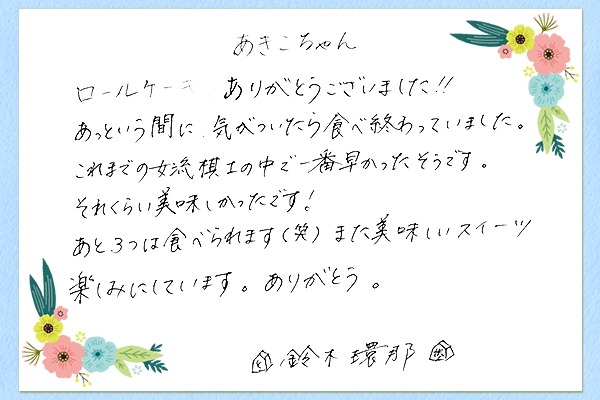 あきこちゃん
ロールケーキ ありがとうございました!!
あっという間に、気がついたら食べ終わっていました。
これまでの女流棋士の中で一番早かったそうです。
それくらい美味しかったです!
あと3つは食べられます(笑) また美味しいスイーツ
楽しみにしています。ありがとう。
鈴木環那